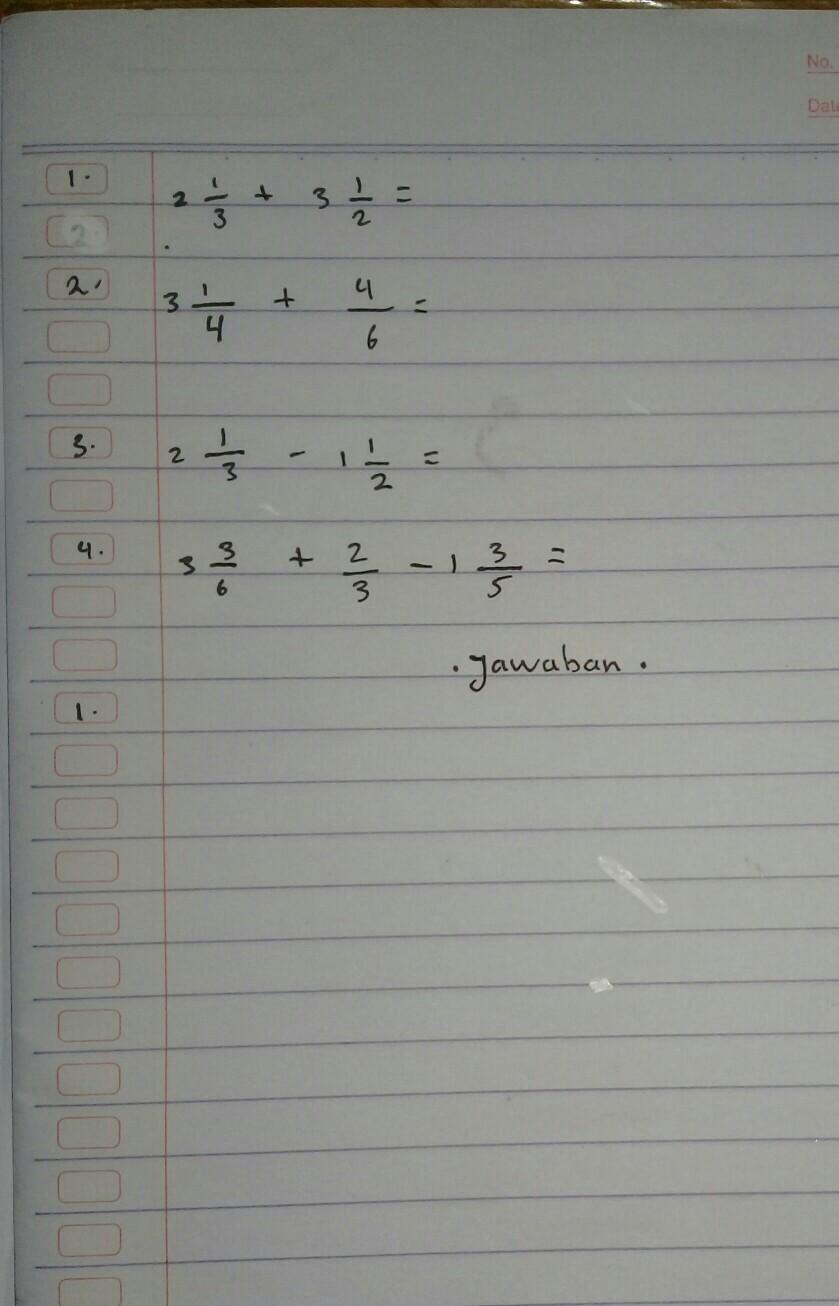 No.
Date
1. 2 1/3 + 3 1/2 =
2.
2. 3 1/4 + 4/6 =
3. 2 1/3 - 1 1/2 =
4. 3 3/6 + 2/3 - 1 3/5 =
. Jawaban .
1.